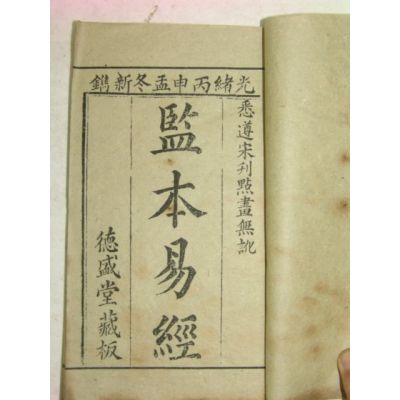 光緒丙申孟冬新鐫
悉遵宋刊點畫無訛
監本易經
德盛堂藏板